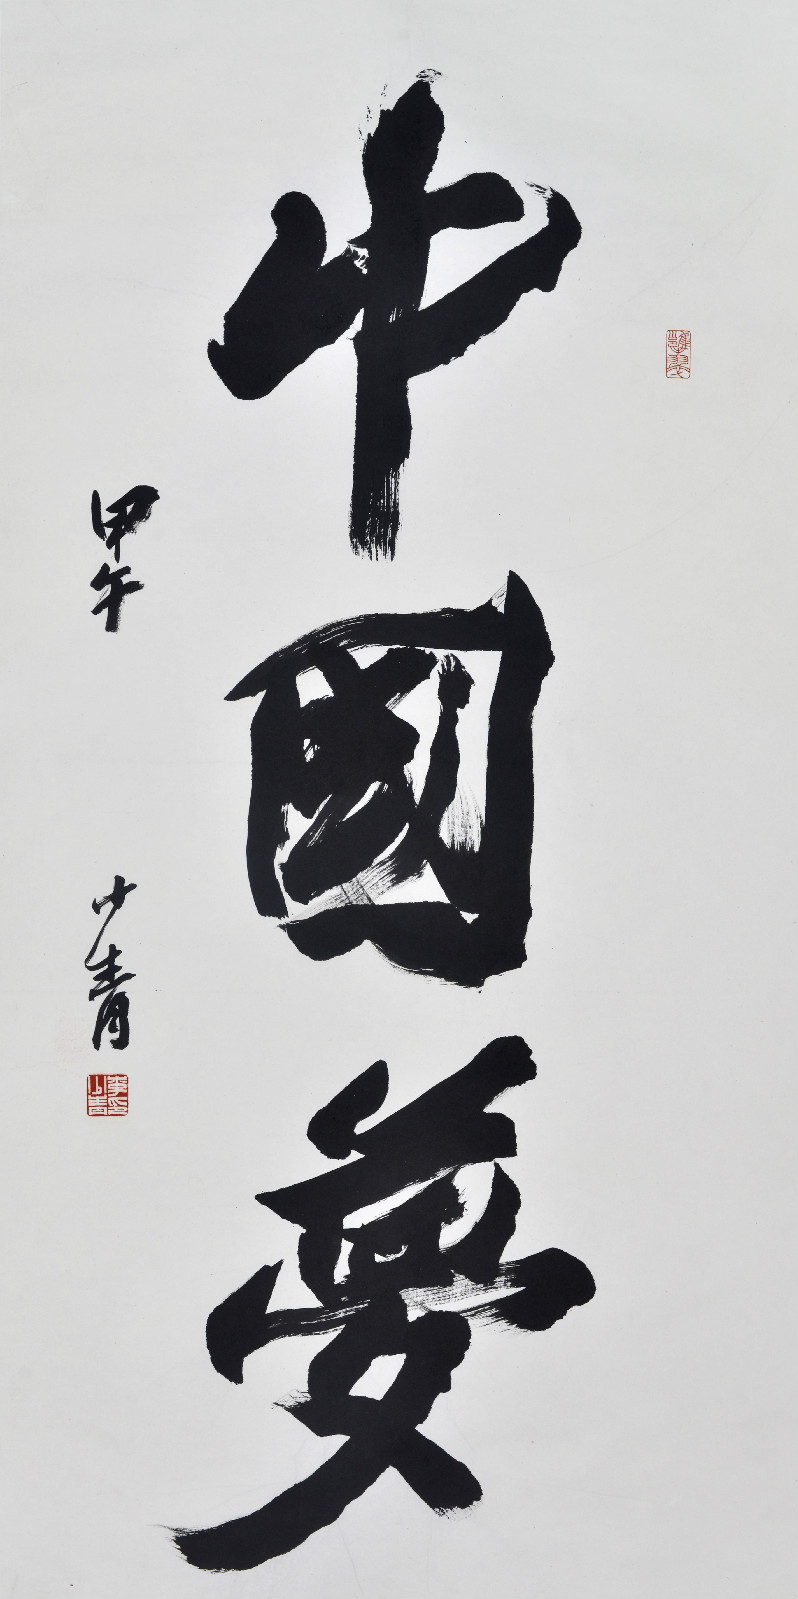 中國夢
甲午
少青